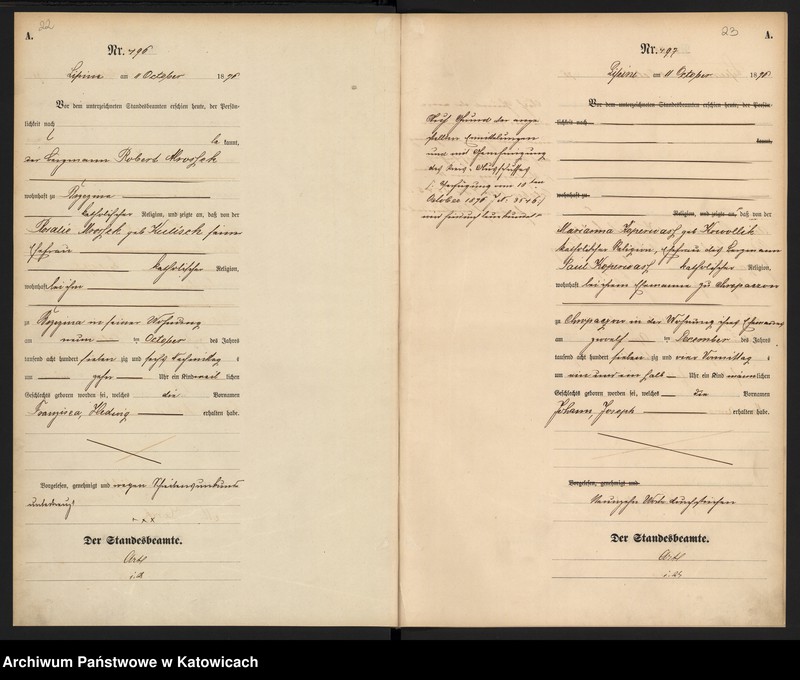 22
A.
Nr. 496
Lipine am 11 October 1876
Vor dem unterzeichneten Standesbeamten erschien heute, der Persön-
lichkeit nach
be kannt,
der Bergmann Robert Mrossek
wohnhaft zu
katholischer Religion, und zeigte an, daß von der
Rosalie Mrossek geb. seiner
Ehefrau
katholischer Religion,
wohnhaft bei ihm
zu in seiner Wohnung
am neun ten October des Jahres
tausend acht hundert sieben zig und sechs Nachmittag s
um zehn Uhr ein Kind weib lichen
Geschlechts geboren worden sei, welches die Vornamen
Franzisca, Hedwig erhalten habe.
Vorgelesen, genehmigt und wegen Schreibensunkunde
unterkreuzt
+++
Der Standesbeamte.
23
A.
Nr. 497
Lipine am 11 October 1876
Auf Grund der ange
stellten Ermittelungen
und mit Genehmigung
des Kreis-Ausschusses
Verfügung vom 10 ten
October 1876
Vor dem unterzeichneten Standesbeamten erschien heute, der Persön-
lichkeit nach
kannt,
wohnhaft zu
Religion, und zeigte an, daß von der
Marianna Koperwas geb. Kowollik
katholischer Religion, Ehefrau des Bergmann
Paul Koperwas katholischer Religion,
wohnhaft bei ihrem Ehemanne zu Chropaczow
zu Chropaczow in der Wohnung ihres Ehemannes
am zwoelf ten December des Jahres
tausend acht hundert sieben zig und vier Vormittag s
um ein und ein halb Uhr ein Kind männ lichen
Geschlechts geboren worden sei, welches die Vornamen
Johann, Joseph erhalten habe.
Vorgelesen, genehmigt und
Neunzehn Worte durchstrichen
Der Standesbeamte.
Archiwum Państwowe w Katowicach